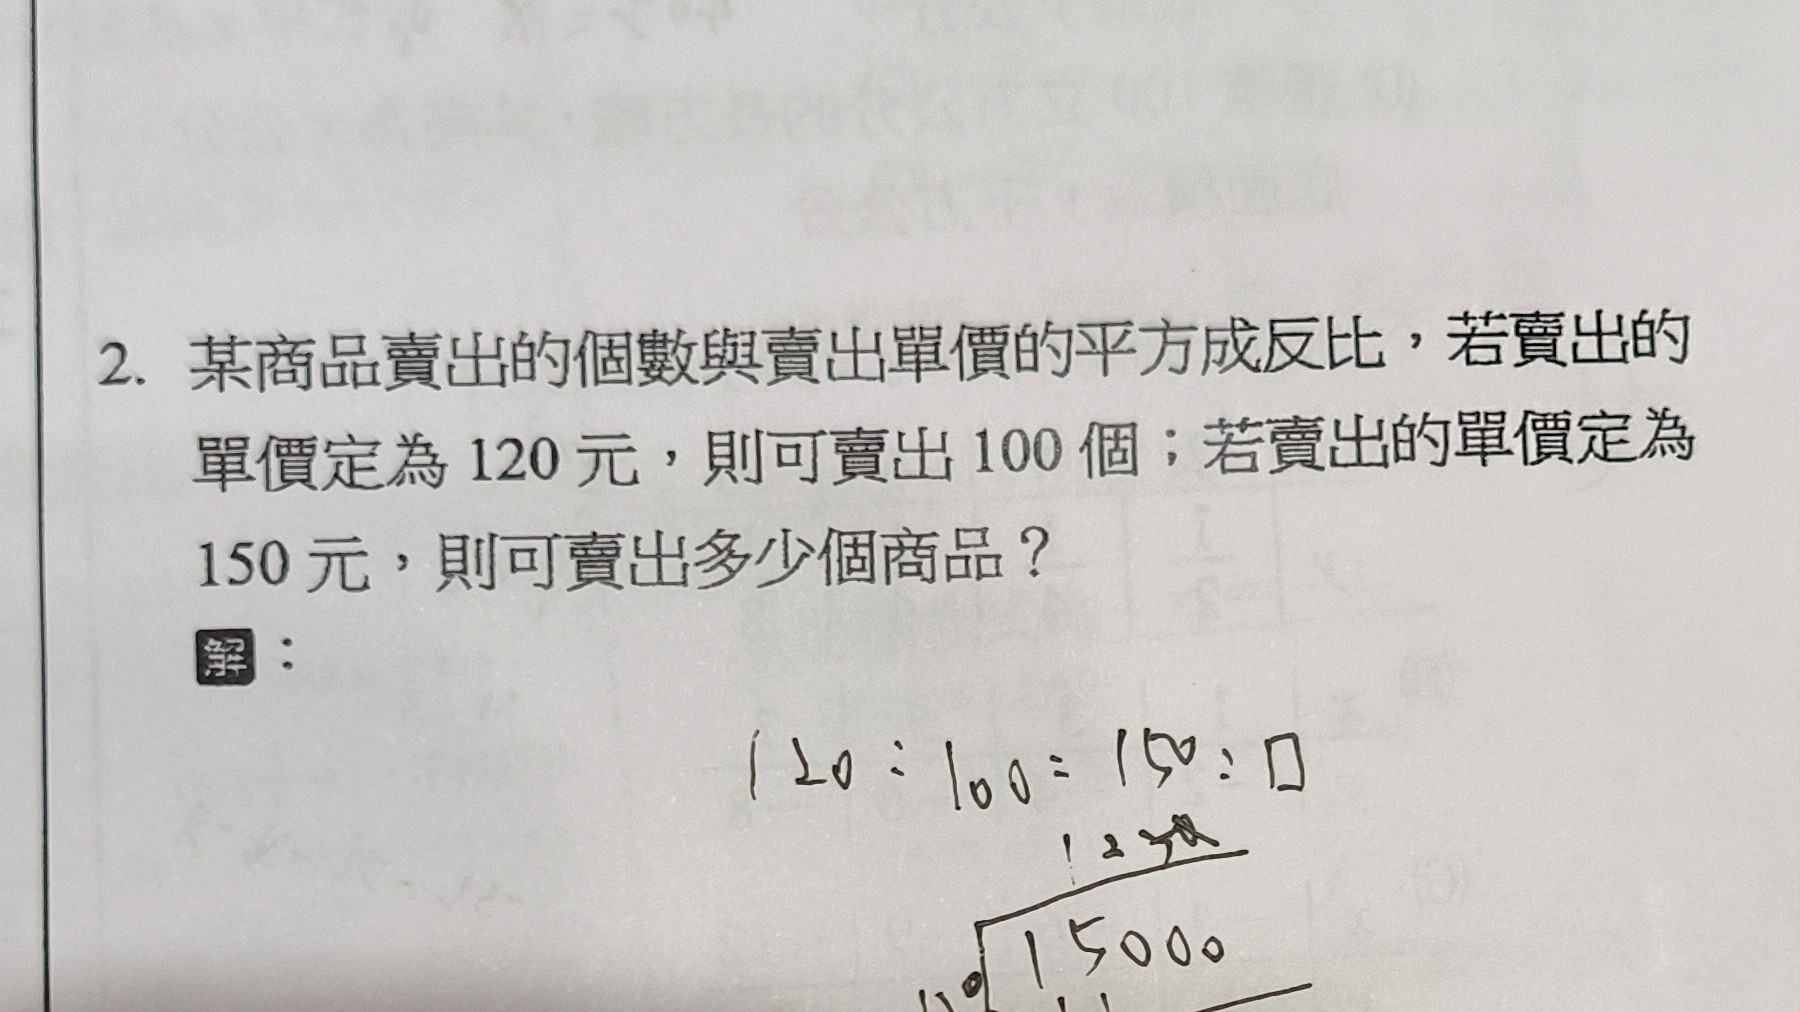 2. 某商品賣出的個數與賣出單價的平方成反比，若賣出的
單價定為 120 元，則可賣出 100 個；若賣出的單價定為
150 元，則可賣出多少個商品？
解：
120:100=150:□
15000